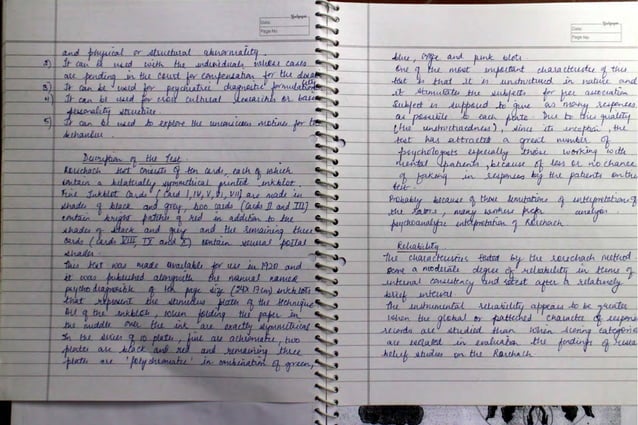 Date:
Page No.
and physical or structural abnormality.
2) It can be used with the individuals whose cases
are pending in the court for compensation for the
3) It can be used for psychiatric diagnostic formulation
4) It can be used for cross cultural researches or
personality structure.
5) It can be used to explore the unconscious motives for the
behaviour
Description of the Test
Rorschach test consists of ten cards, each of which
contain a bilaterally symmetrical printed inkblot.
Five Inkblot Cards (Card I, IV, V, VI, VII) are made in
shades of black and gray, two cards (Cards II and III)
contain bright patches of red in addition to the
shades of black and grey and the remaining three
cards (cards VIII, IX and X) contain several pastel
shades.
This test was made available for use in 1920 and
it was published alongwith the manual named
psychodiagnostic of the page size (24 x 17cm) inkblots
that represent the stimulus plates of the technique
All of the inkblots, when folding the paper in
the middle over the ink are exactly symmetrical
In the series of 10 plates, five are achromatic, two
plates are black and red and remaining three
plates are 'polychromatic' in combination of green,
Date:
Page No.
blue, and pink blots
One of the most important characteristic of this
test is that it is unstructured in nature and
it stimulates the subjects for free association
Subject is supposed to give as many responses
as possible to each plate. Due to this quality
(the unstructuredness), since its inception, the
test has attracted a great number of
psychologists especially those working with
mental patients, because of less or no chance
of faking in responses by the patients on the
test.
Probably because of these limitations of interpretation of
the many workers prefer
psychoanalytic interpretation of Rorschach.
Reliability
The characteristics tested by the rorschach method
a moderate degree of reliability in terms of
internal consistency and retest after a relatively
brief interval.
The instrumental reliability appears to be greater
when the global or patterned character of response
records are studied than when scoring categories
are isolated in evaluation the findings of
studies on the Rorschach